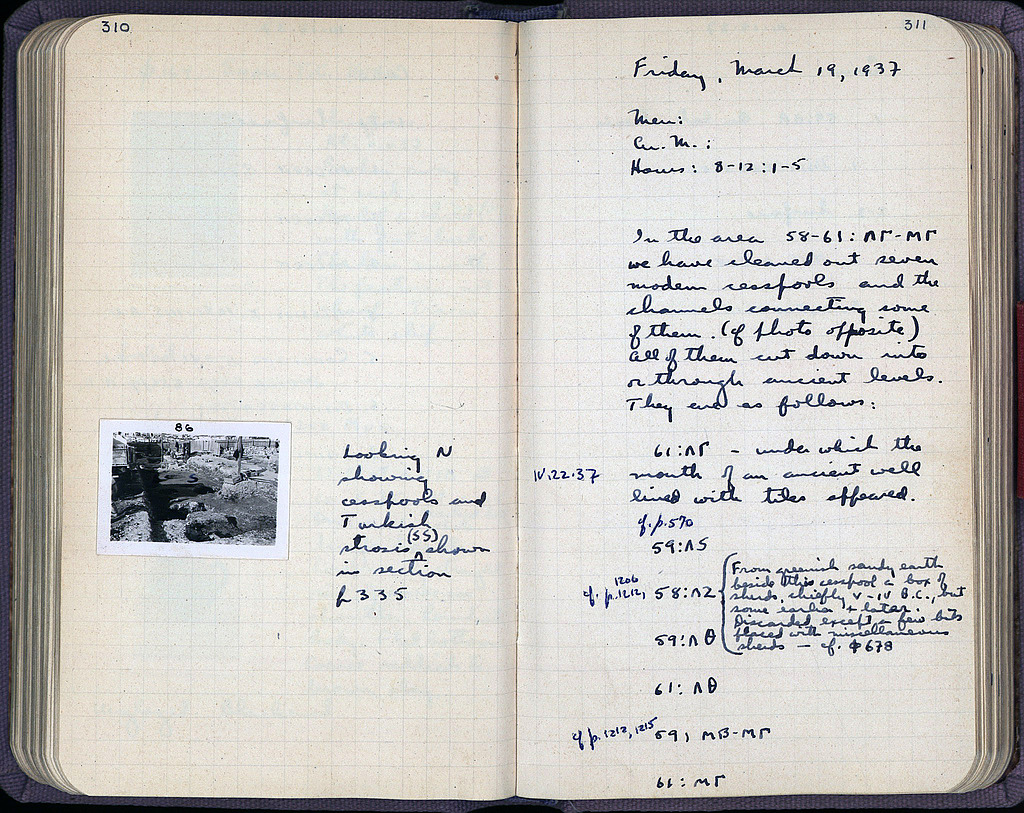 310
86
Looking N
showing
cesspools and
Turkish
strosis (SS) shown
in section
p 335
311
Friday, March 19, 1937
Men:
Cu. M. :
Hours: 8-12 : 1-5
In the area 58-61 : ΛΓ-ΜΓ
we have cleaned out seven
modern cesspools and the
channels connecting some
of them. (cf photo opposite)
All of them cut down into
or through ancient levels.
They are as follows:
61:ΛΓ - under which the
IV.22.37 mouth of an ancient well
lined with tiles appeared.
cf. p. 570
59:ΛS
cf. p. 1206, 1212, 58:ΛΖ
From greenish sandy earth
beside this cesspool a box of
sherds, chiefly V-IV B.C., but
some earlier & later.
Discarded except a few bits
placed with miscellaneous
sherds — cf. φ 678
59:ΛΘ
61:ΛΘ
cf p. 1212, 1215 59, ΜΒ-ΜΓ
61:ΜΓ